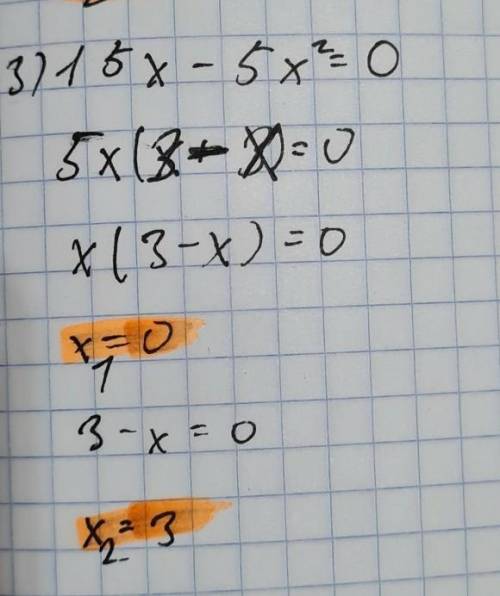 3) 15x - 5x² = 0
5x(3 - x) = 0
x(3 - x) = 0
x₁ = 0
3 - x = 0
x₂ = 3